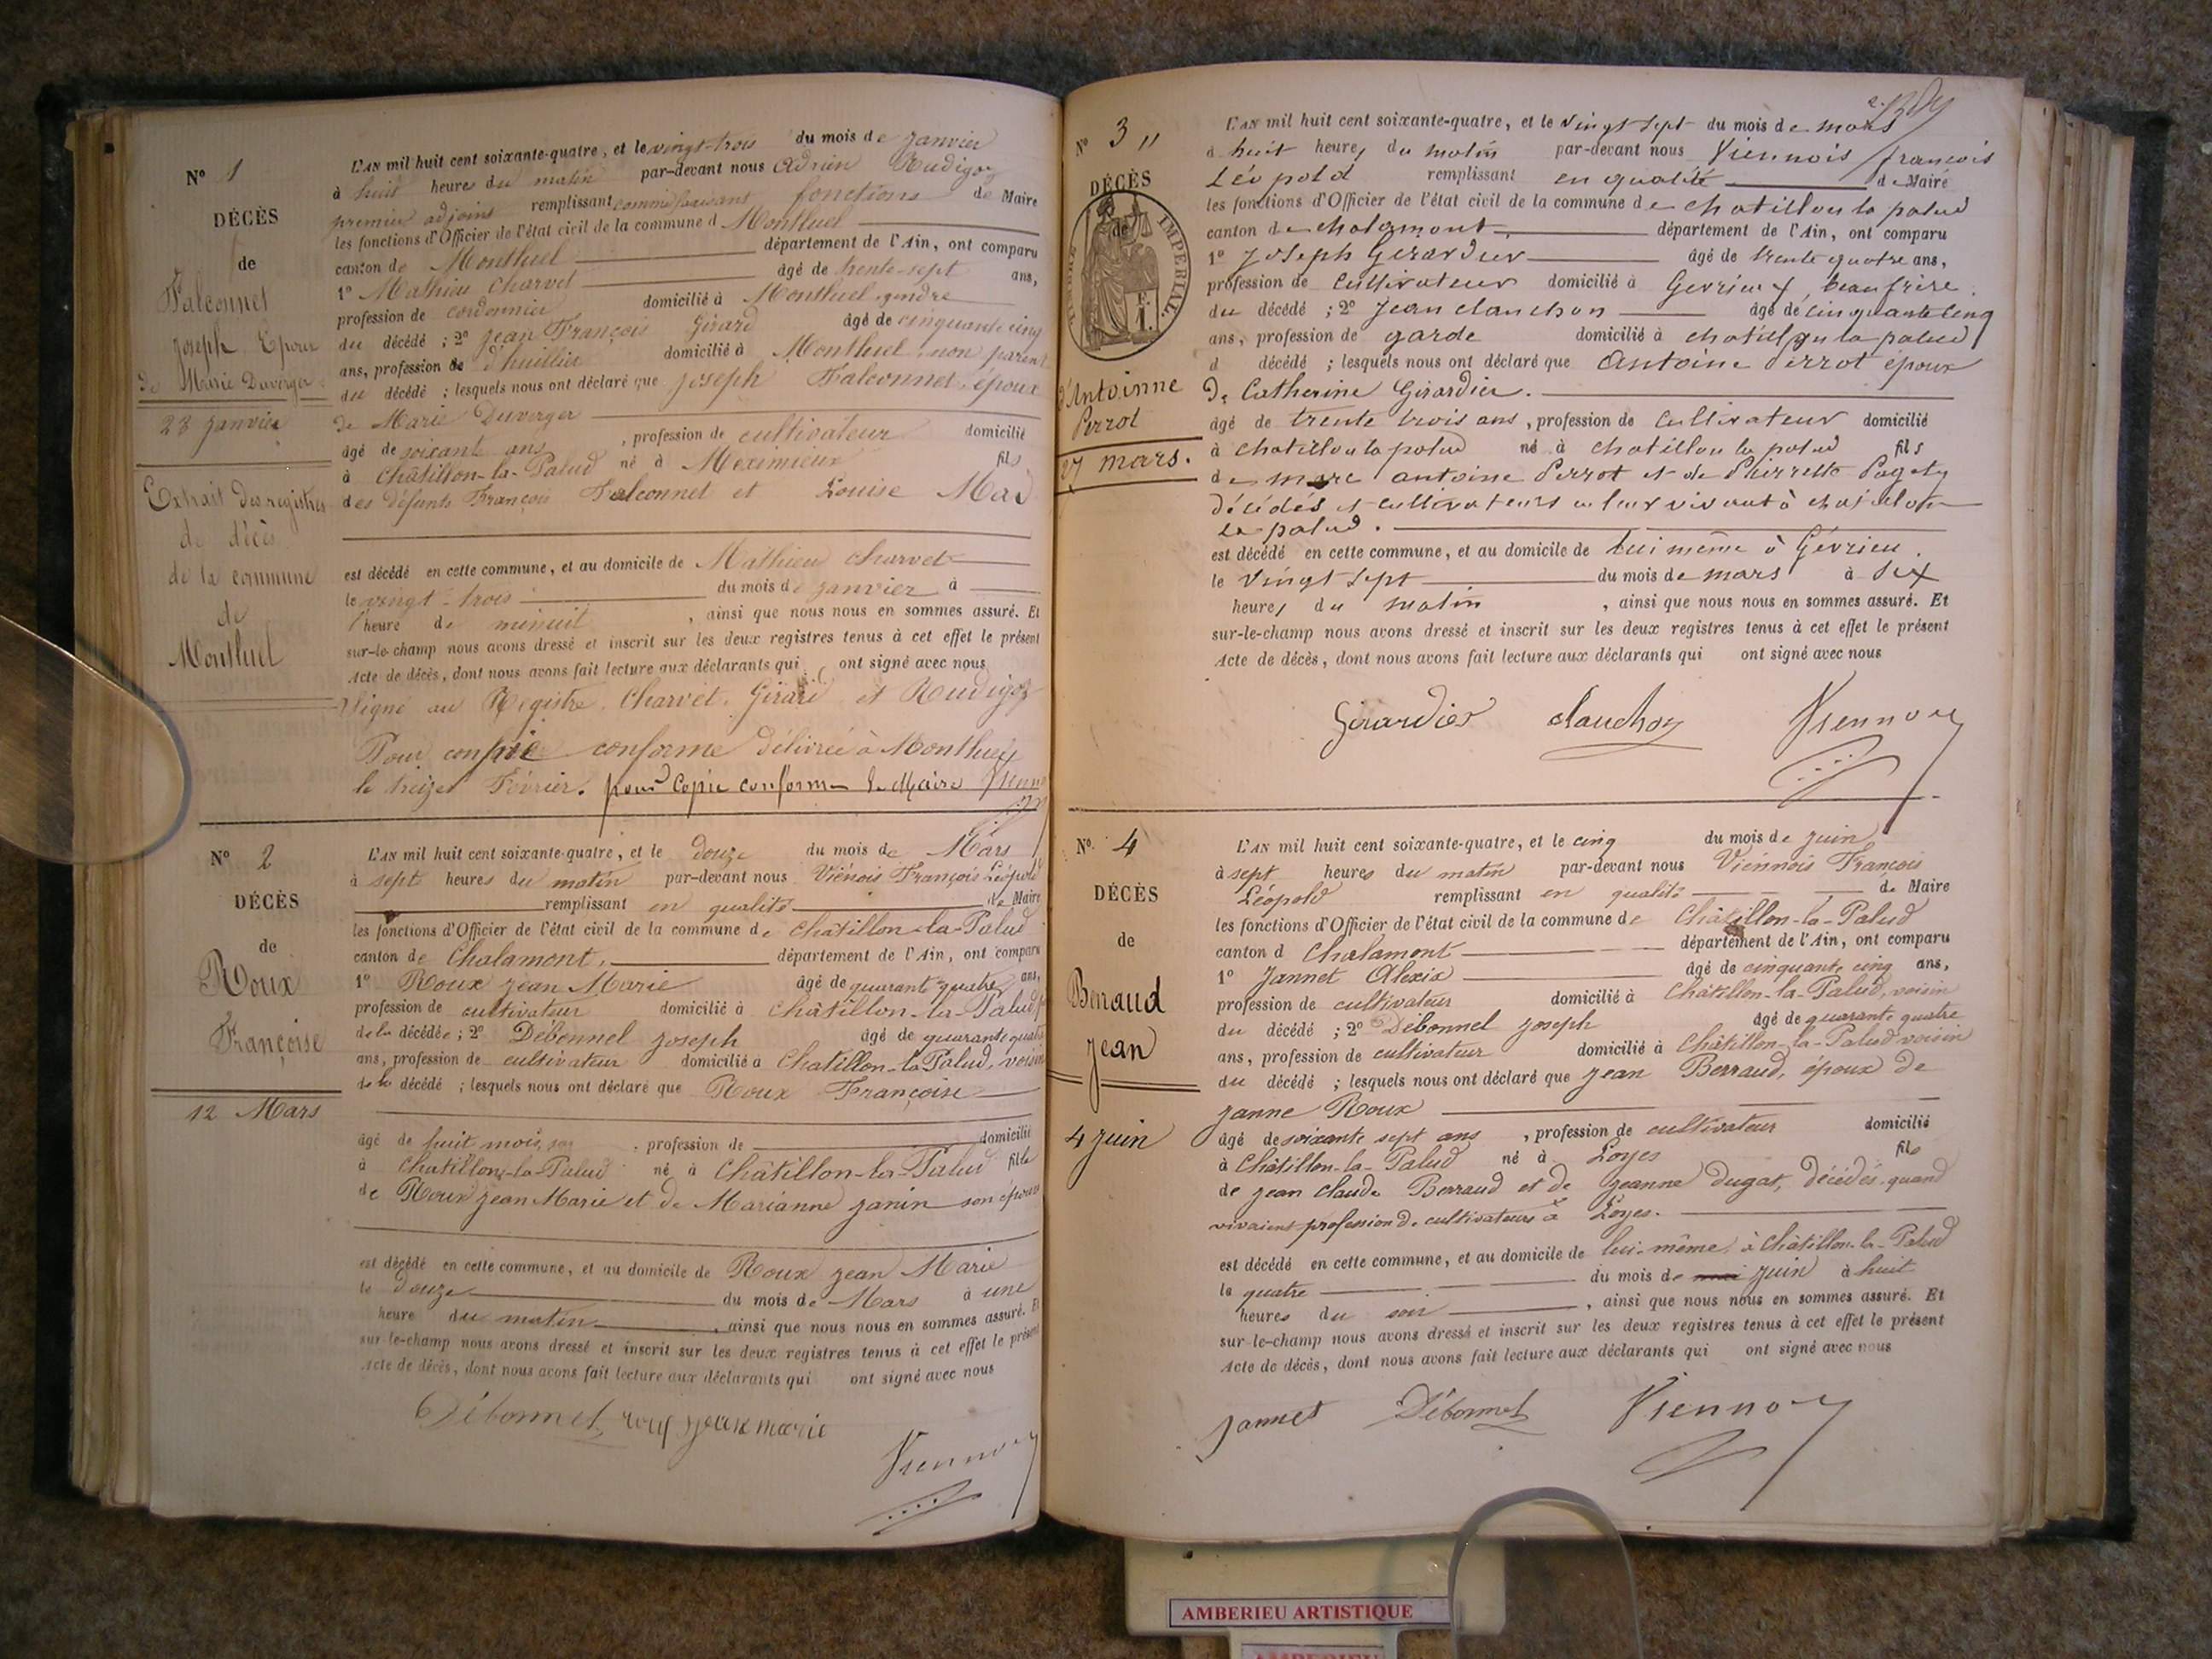 Nº 1
DÉCÈS
de
Falconnet
Joseph Epoux
de Marie Duverger
23 janvier
Extrait des registres
de décès
de la commune
de
Montluel
L'AN mil huit cent soixante-quatre, et le vingt-trois du mois de janvier
à huit heures du matin par-devant nous Adrien Rudigoz
premier adjoint remplissant comme faisant fonctions de Maire
les fonctions d'Officier de l'état civil de la commune d Montluel
canton de Montluel département de l'Ain, ont comparu
1º Mathieu Charvet âgé de trente-sept ans,
profession de cordonnier domicilié à Montluel, gendre
du décédé ; 2º jean François Girard âgé de cinquante cinq
ans, profession d'huissier domicilié à Montluel, non parent
du décédé ; lesquels nous ont déclaré que joseph Falconnet, époux
de Marie Duverger
âgé de soixant ans, profession de cultivateur domicilié
à Châtillon-la-Palud né à Meximieux fils
des défunts François Falconnet et Louise
est décédé en cette commune, et au domicile de Mathieu Charvet
le vingt-trois du mois de janvier à
l'heure de minuit, ainsi que nous nous en sommes assuré. Et
sur-le-champ nous avons dressé et inscrit sur les deux registres tenus à cet effet le présent
Acte de décès, dont nous avons fait lecture aux déclarants qui ont signé avec nous
Signé au Registre. Charvet. Girard et Rudigoz
Pour conforme délivrée à Montluel
le treize Février. pour Copie conforme le Maire
Nº 2
DÉCÈS
de
Roux
Françoise
12 Mars
L'AN mil huit cent soixante-quatre, et le douze du mois de Mars
à sept heures du matin par-devant nous Viénois François Léopold
remplissant en qualité de Maire
les fonctions d'Officier de l'état civil de la commune de Chatillon-la-Palud
canton de Chalamont, département de l'Ain, ont comparu
1º Roux jean Marie âgé de quarant quatre ans,
profession de cultivateur domicilié à Châtillon-la-Palud
de la décédée ; 2º Débonnel joseph âgé de quarante quatre
ans, profession de cultivateur domicilié à Chatillon-la-Palud, voisin
de la décédé ; lesquels nous ont déclaré que Roux Françoise
âgé de huit mois, profession de domicilié
à Chatillon-la-Palud né à Châtillon-la-Palud fille
de Roux jean Marie et de Marianne janin son épouse
est décédé en cette commune, et au domicile de Roux jean Marie
le douze du mois de Mars à une
heure du matin, ainsi que nous nous en sommes assuré. Et
sur-le-champ nous avons dressé et inscrit sur les deux registres tenus à cet effet le présent
Acte de décès, dont nous avons fait lecture aux déclarants qui ont signé avec nous
Débonnel
Viennois
Nº 3
DÉCÈS
de
TIMBRE IMPÉRIAL
d'Antoinne
Perrot
27 mars.
L'AN mil huit cent soixante-quatre, et le vingt sept du mois de mars
à huit heures du matin par-devant nous Viennois françois
Léopold remplissant en qualité de Maire
les fonctions d'Officier de l'état civil de la commune de chatillon la palud
canton de chalamont département de l'Ain, ont comparu
1º Joseph Gerardier âgé de trente quatre ans,
profession de cultivateur domicilié à Gevrieux beau frère
du décédé ; 2º Jean clanchon âgé de cinquante cinq
ans, profession de garde domicilié à chatillon la palud
d décédé ; lesquels nous ont déclaré que Antoine Perrot époux
De Catherine Girardier.
âgé de trente trois ans, profession de cultivateur domicilié
à chatillon la palud né à chatillon la palud fils
de marc antoine Perrot et de Pierrette
décédés et cultivateurs en leur vivant à chatillon
la palud.
est décédé en cette commune, et au domicile de lui même à Gévrieu.
le vingt sept du mois de mars à six
heures du matin, ainsi que nous nous en sommes assuré. Et
sur-le-champ nous avons dressé et inscrit sur les deux registres tenus à cet effet le présent
Acte de décès, dont nous avons fait lecture aux déclarants qui ont signé avec nous
Girardier clauchon Viennois
Nº 4
DÉCÈS
de
Berraud
jean
4 juin
L'AN mil huit cent soixante-quatre, et le cinq du mois de juin
à sept heures du matin par-devant nous Viennois François
Léopold remplissant en qualité de Maire
les fonctions d'Officier de l'état civil de la commune de Châtillon-la-Palud
canton d Chalamont département de l'Ain, ont comparu
1º Jannet Alexis âgé de cinquante cinq ans,
profession de cultivateur domicilié à Châtillon-la-Palud, voisin
du décédé ; 2º Débonnel joseph âgé de quarante quatre
ans, profession de cultivateur domicilié à Châtillon-la-Palud voisin
du décédé ; lesquels nous ont déclaré que jean Berraud, époux de
janne Roux
âgé de soixante sept ans, profession de cultivateur domicilié
à Châtillon-la-Palud né à Loyes fils
de jean claude Berraud et de jeanne Dugas, décédés, quand
vivaient profession de cultivateurs à Loyes.
est décédé en cette commune, et au domicile de lui-même, à Châtillon-la-Palud
le quatre du mois de juin à huit
heures du soir, ainsi que nous nous en sommes assuré. Et
sur-le-champ nous avons dressé et inscrit sur les deux registres tenus à cet effet le présent
Acte de décès, dont nous avons fait lecture aux déclarants qui ont signé avec nous
Jannet Débonnel Viennois
AMBERIEU ARTISTIQUE
AMBERIEU